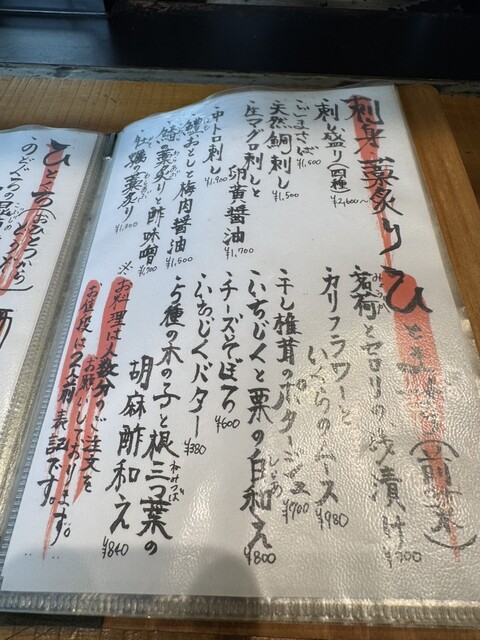 刺身・藁炙り
刺し盛り(四種) ¥2,600〜
ごまさば ¥1,500
天然鯛刺し ¥1,500
生マグロ刺しと
卵黄醤油 ¥1,700
中トロ刺し ¥1,900
鱧おとしと梅肉醤油 ¥1,500
藁炙りと酢味噌
の藁炙り
ひと
(前菜)
茗荷とセロリの浅漬け ¥700
カリフラワーと
いくらのムース ¥980
干し椎茸のポタージュ ¥700
いちじくと栗の白和え ¥800
チーズそぼろ ¥600
いちじくバター ¥380
5種の木の子と根三つ葉の
胡麻酢和え ¥840
※お料理は人数分のご注文を
お願いしております。
お値段は2名前表記です。
ひとくち(おひとつから)
のどぐろ